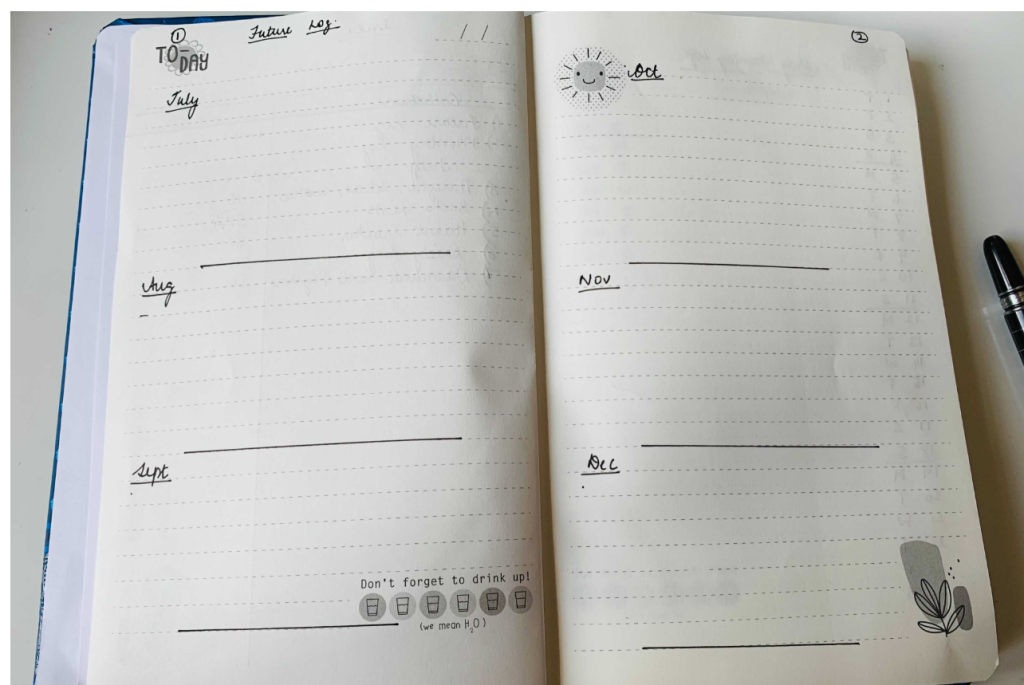 ①
Future Log.
TO-DAY
/ /
July
Aug
-
Sept
.
Don't forget to drink up!
(we mean H₂O)
②
Oct
Nov
Dec
.